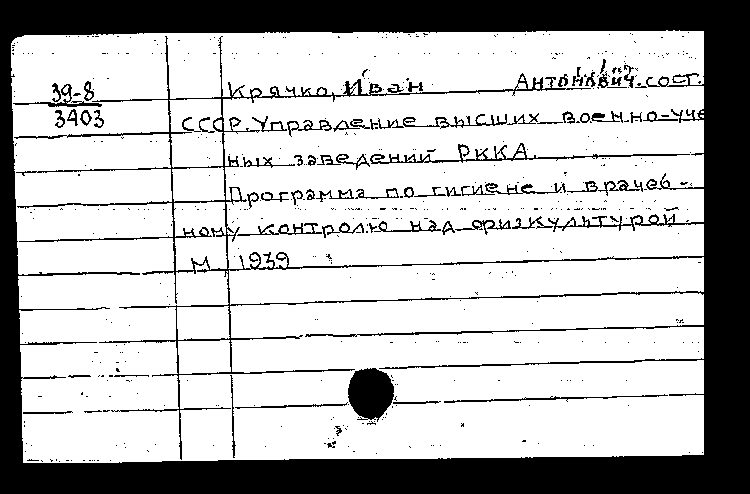 39-8
3403
Крячко, Иван Антонович. сост.
СССР. Управление высших военно-уче
ных заведений РККА.
Программа по гигиене и врачеб-
ному контролю над физкультурой.
М 1939